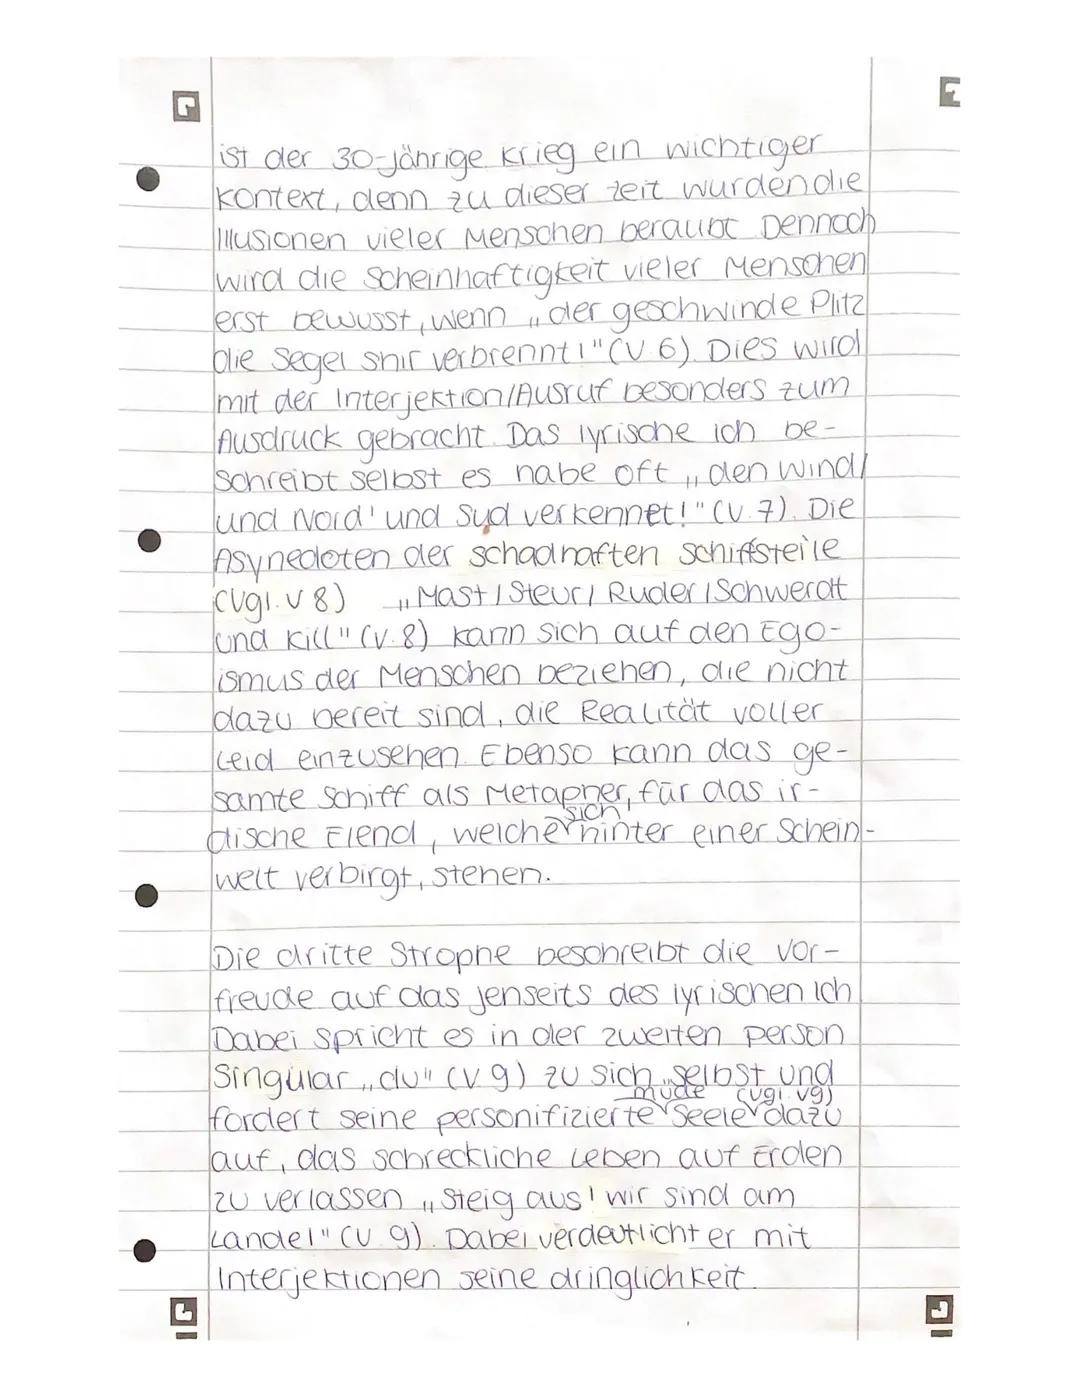 ist der 30-jährige Krieg ein wichtiger
Kontext, denn zu dieser Zeit wurden die
Illusionen vieler Menschen beraubt. Dennoch
wird die Scheinhaftigkeit vieler Menschen
erst bewusst, wenn „der geschwinde Plitz
die Segel shir verbrennt!" (V.6). Dies wird
mit der Interjektion/Ausruf besonders zum
Ausdruck gebracht. Das lyrische ich be-
schreibt selbst es habe oft „den Wind/
und Nord' und Syd verkennet!" (V.7). Die
Asynedoten der schadhaften Schiffsteile
(Vgl. V 8) „Mast / Steur / Ruder / Schwerdt
und Kill" (V.8) kann sich auf den Ego-
ismus der Menschen beziehen, die nicht
dazu bereit sind, die Realität voller
Leid einzusehen. Ebenso kann das ge-
samte Schiff als Metapher, für das ir-
dische Elend, welche sich hinter einer Schein-
welt verbirgt, stehen.
Die dritte Strophe beschreibt die Vor-
freude auf das jenseits des lyrischen Ich
Dabei spricht es in der zweiten person
Singular „du" (V.9) zu sich selbst und
fordert seine personifizierte müde Seele (vgl. V9) dazu
auf, das schreckliche Leben auf Erden
zu verlassen „Steig aus! wir sind am
Lande!" (V.9). Dabei verdeutlicht er mit
Interjektionen seine dringlichkeit.